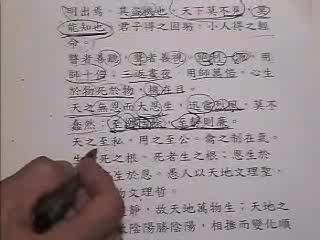 明出焉。其盜機也，天下莫不見，莫
能知也。君子得之固躬，小人得之輕
命。
瞽者善聽，聾者善視。絕利一源，用
師十倍；三返晝夜，用師萬倍。心生
於物死於物，機在目。
天之無恩而大恩生，迅雷烈風，莫不
蠢然；至樂性餘，至靜則廉。
天之至私，用之至公。禽之制在氣。
生 死之根。死者生之根；恩生於
生於恩。愚人以天地文理聖，
物文理哲。
靜，故天地萬物生；天地之
陰陽勝陰陽，相推而變化順